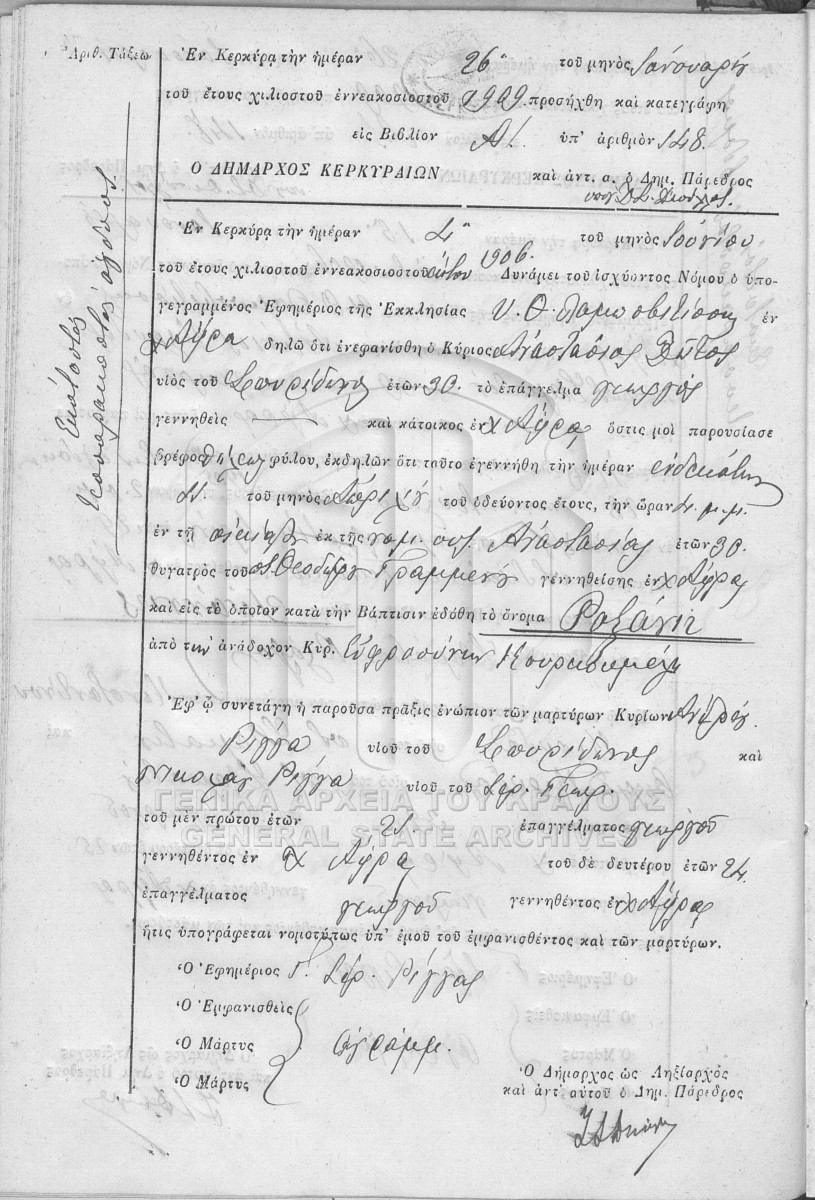 Ἀριθ. Τάξεως Ἐν Κερκύρᾳ τὴν ἡμέραν 26 τοῦ μηνὸς Ἰανουαρίου
τοῦ ἔτους χιλιοστοῦ ἐννεακοσιοστοῦ 1909 προσήχθη καὶ κατεγράφη
εἰς Βιβλίον Α/. ὑπ' ἀριθμὸν 148.
Ο ΔΗΜΑΡΧΟΣ ΚΕΡΚΥΡΑΙΩΝ καὶ ἀντ. α. ὁ Δημ. Πάρεδρος
Ἑκατοστὸς τεσσαρακοστὸς ὄγδοος
Ἐν Κερκύρᾳ τὴν ἡμέραν 4 τοῦ μηνὸς Ἰουνίου
τοῦ ἔτους χιλιοστοῦ ἐννεακοσιοστοῦ ἕκτου 1906. Δυνάμει τοῦ ἰσχύοντος Νόμου ὁ ὑπο-
γεγραμμένος Ἐφημέριος τῆς Ἐκκλησίας Υ. Θ. ἐν
χ Ἄφρα δηλῶ ὅτι ἐνεφανίσθη ὁ Κύριος Ἀναστάσιος
υἱὸς τοῦ Σπυρίδωνος ἐτῶν 30. τὸ ἐπάγγελμα γεωργὸς
γεννηθεὶς — καὶ κάτοικος ἐν χ Ἄφρα ὅστις μοὶ παρουσίασε
βρέφος θήλεως φύλου, ἐκδηλῶν ὅτι τοῦτο ἐγεννήθη τὴν ἡμέραν ἑνδεκάτην
11. τοῦ μηνὸς Ἀπριλίου τοῦ ὁδεύοντος ἔτους, τὴν ὥραν μ.μ.
ἐν τῇ οἰκίᾳ ἐκ τῆς νομ. συζ. Ἀναστασίας ἐτῶν 30.
θυγατρὸς τοῦ Θεοδώρου Γραμμένου γεννηθείσης ἐν χ Ἄφρα
καὶ εἰς τὸ ὁποῖον κατὰ τὴν Βάπτισιν ἐδόθη τὸ ὄνομα Ροξάνη
ἀπὸ τὴν ἀνάδοχον Κυρ. Εὐφροσύνην
Ἐφ' ᾧ συνετάγη ἡ παροῦσα πρᾶξις ἐνώπιον τῶν μαρτύρων Κυρίων Ἀνδρέου
Ρίγγα υἱοῦ τοῦ Σπυρίδωνος καὶ
Νικολάου Ρίγγα υἱοῦ τοῦ
ΓΕΝΙΚΑ ΑΡΧΕΙΑ ΤΟΥ ΚΡΑΤΟΥΣ
τοῦ μὲν πρώτου ἐτῶν 21. ἐπαγγέλματος γεωργοῦ
GENERAL STATE ARCHIVES
γεννηθέντος ἐν χ Ἄφρα τοῦ δὲ δευτέρου ἐτῶν 24.
ἐπαγγέλματος γεωργοῦ γεννηθέντος ἐν χ Ἄφρα
ἥτις ὑπογράφεται νομοτύπως ὑπ' ἐμοῦ τοῦ ἐμφανισθέντος καὶ τῶν μαρτύρων.
Ὁ Ἐφημέριος Ρίγγας
Ὁ Ἐμφανισθεὶς
Ὁ Μάρτυς ἀγράμμ.
Ὁ Μάρτυς
Ὁ Δήμαρχος ὡς Ληξίαρχος
καὶ ἀντ' αὐτοῦ ὁ Δημ. Πάρεδρος